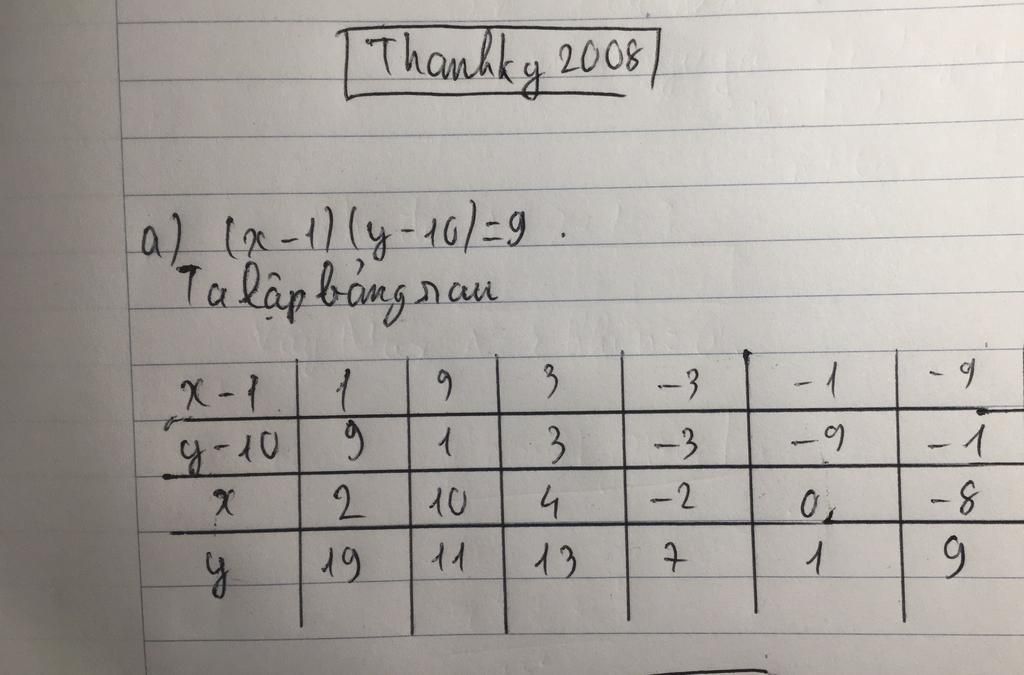 Thanhky 2008
a) (x-1)(y-10)=9.
Ta lập bảng sau
x-1 1 9 3 -3 -1 -9
y-10 9 1 3 -3 -9 -1
x 2 10 4 -2 0 -8
y 19 11 13 7 1 9